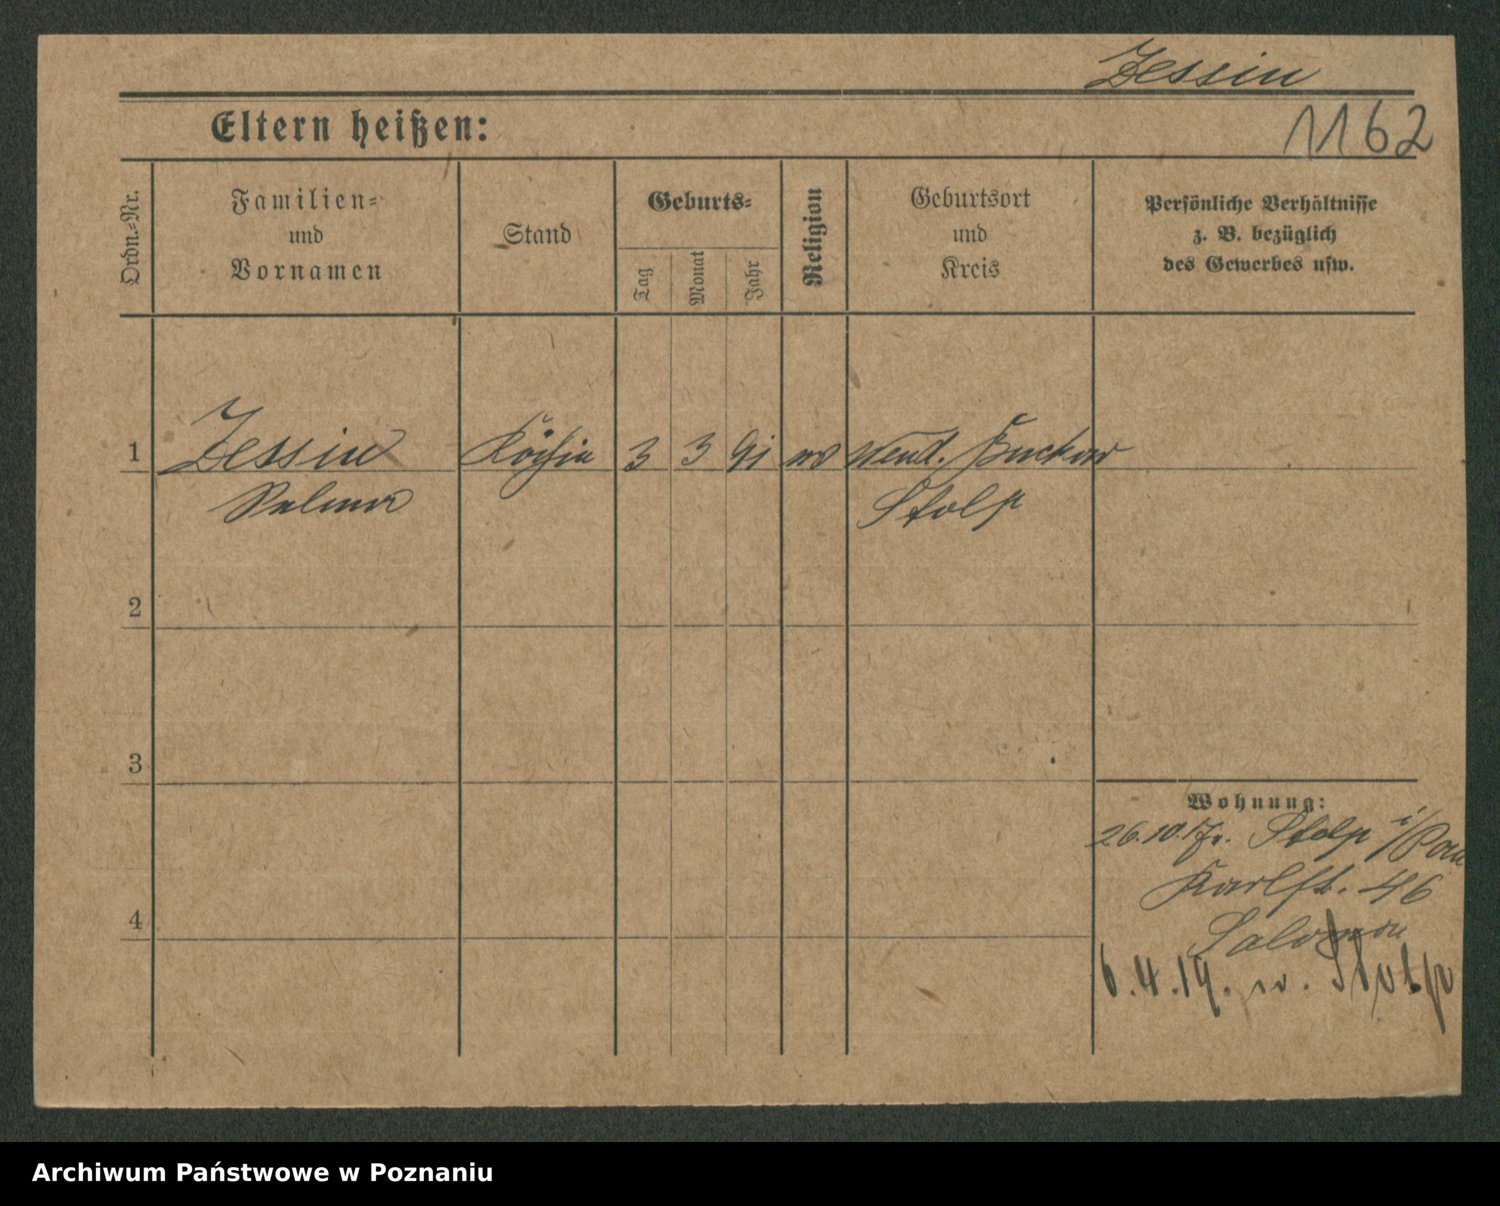 Zessin
1162
Eltern heißen:
Ordn.-Nr.
Familien-
und
Vornamen
Stand
Geburts-
Tag
Monat
Jahr
Religion
Geburtsort
und
Kreis
Persönliche Verhältnisse
z. B. bezüglich
des Gewerbes usw.
1 Zessin Köchin 3 3 91 Wend. Buckow
Selma Stolp
2
3
4
Wohnung:
26.10.17 Stolp i/Pom
Karlst. 46
Salomon
6.4.19. Stolp
Archiwum Państwowe w Poznaniu